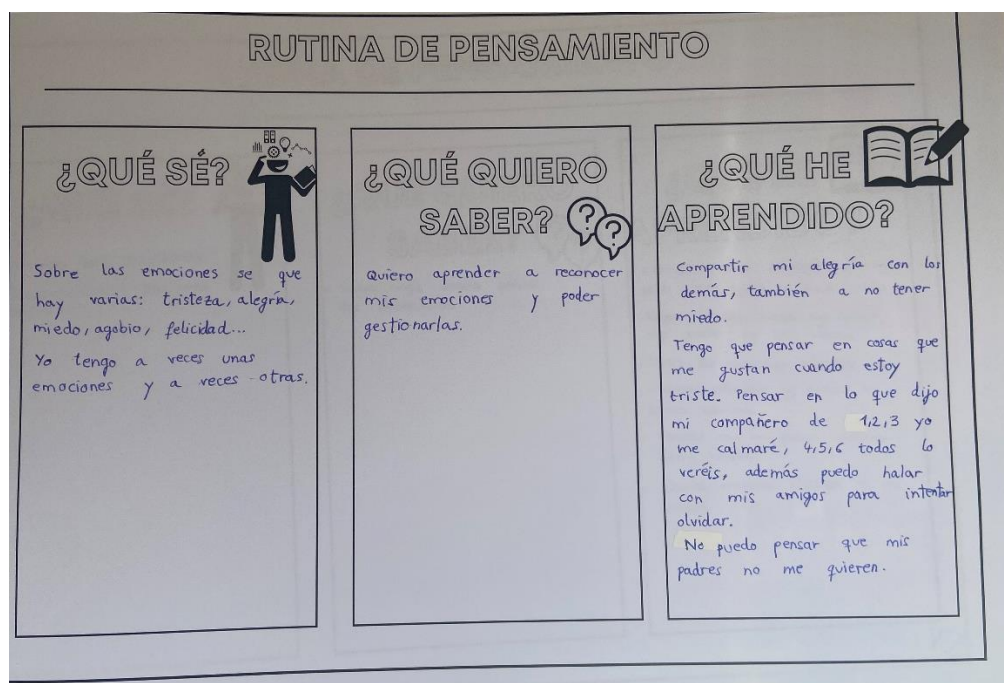 RUTINA DE PENSAMIENTO
¿QUÉ SÉ?
Sobre las emociones se que
hay varias: tristeza, alegría,
miedo, agobio, felicidad...
Yo tengo a veces unas
emociones y a veces otras.
¿QUÉ QUIERO
SABER?
Quiero aprender a reconocer
mis emociones y poder
gestionarlas.
¿QUÉ HE
APRENDIDO?
Compartir mi alegría con los
demás, también a no tener
miedo.
Tengo que pensar en cosas que
me gustan cuando estoy
triste. Pensar en lo que dijo
mi compañero de 1,2,3 yo
me calmaré, 4,5,6 todos lo
veréis, además puedo halar
con mis amigos para intentar
olvidar.
No puedo pensar que mis
padres no me quieren.